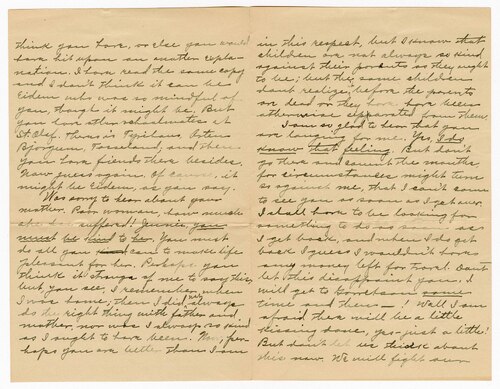 think you have, or else you would
have hit upon an another expla-
nation. I have read the same copy
and I don't think it can be
Eidem who was so mindful of
you, though it might be. But
you have other relatives at
St Olaf. There is Typihaus, Osten
Bjorgum, Tosseland, and then
you have friends there besides.
Now guess again. Of course, it
might be Eidem, as you say.
Was sorry to hear about your
mother. Poor woman, how much
she suffers! Gunnie, you
must be kind to her. You must
do all you can to make life
pleasant for her. Perhaps you
think it strange of me to say this,
but you see, I remember when
I was home; then I did not always
do the right thing with father and
mother, nor was I always so kind
as I ought to have been. Now, per-
haps you are better than I am
in this respect, but I know that
children are not always so kind
against their parents as they ought
to be; but the same children
don't realize, before the parents
are dead or they have been
otherwise separated from them.
I am so glad to hear that you
are longing for me. Yes, I do
know that feeling. But don't
go there and count the months
for circumstances might turn
so against me, that I can't come
to see you so soon as I get over.
I shall have to be looking for
something to do as soon as
I get back, and when I do get
back I guess I wouldn't have
any money left for travel. Don't
let this disappoint you; I
will get to again
time and then —! Well I am
afraid there will be a little
kissing done, yes - just a little!
But don't let us think about
this now. We will fight our